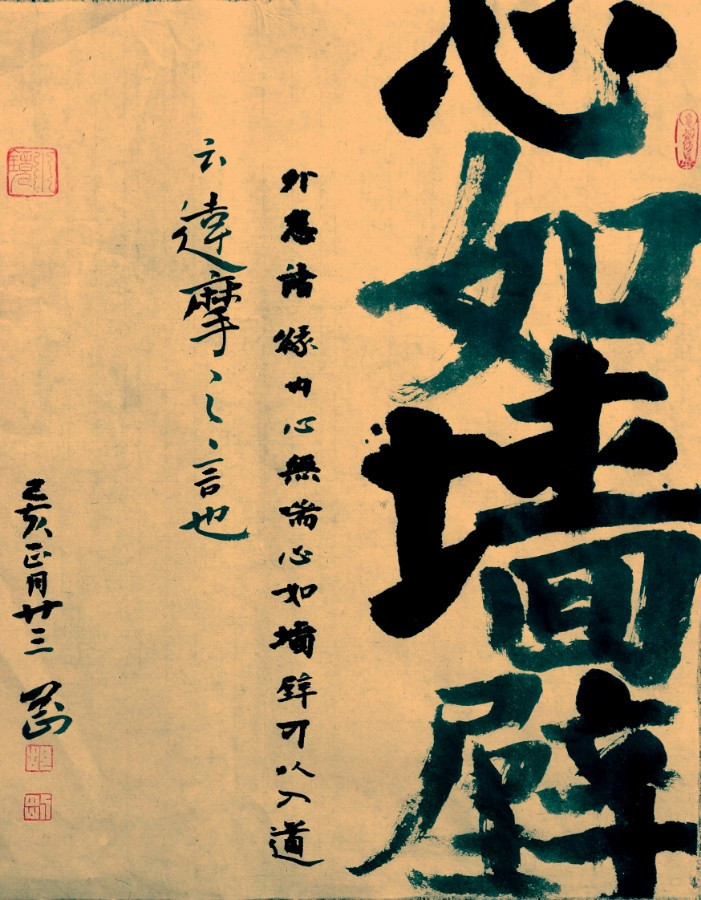 心如墙壁
外息诸缘内心無喘心如墙壁可以入道
云達摩之言也
己亥正月廿三